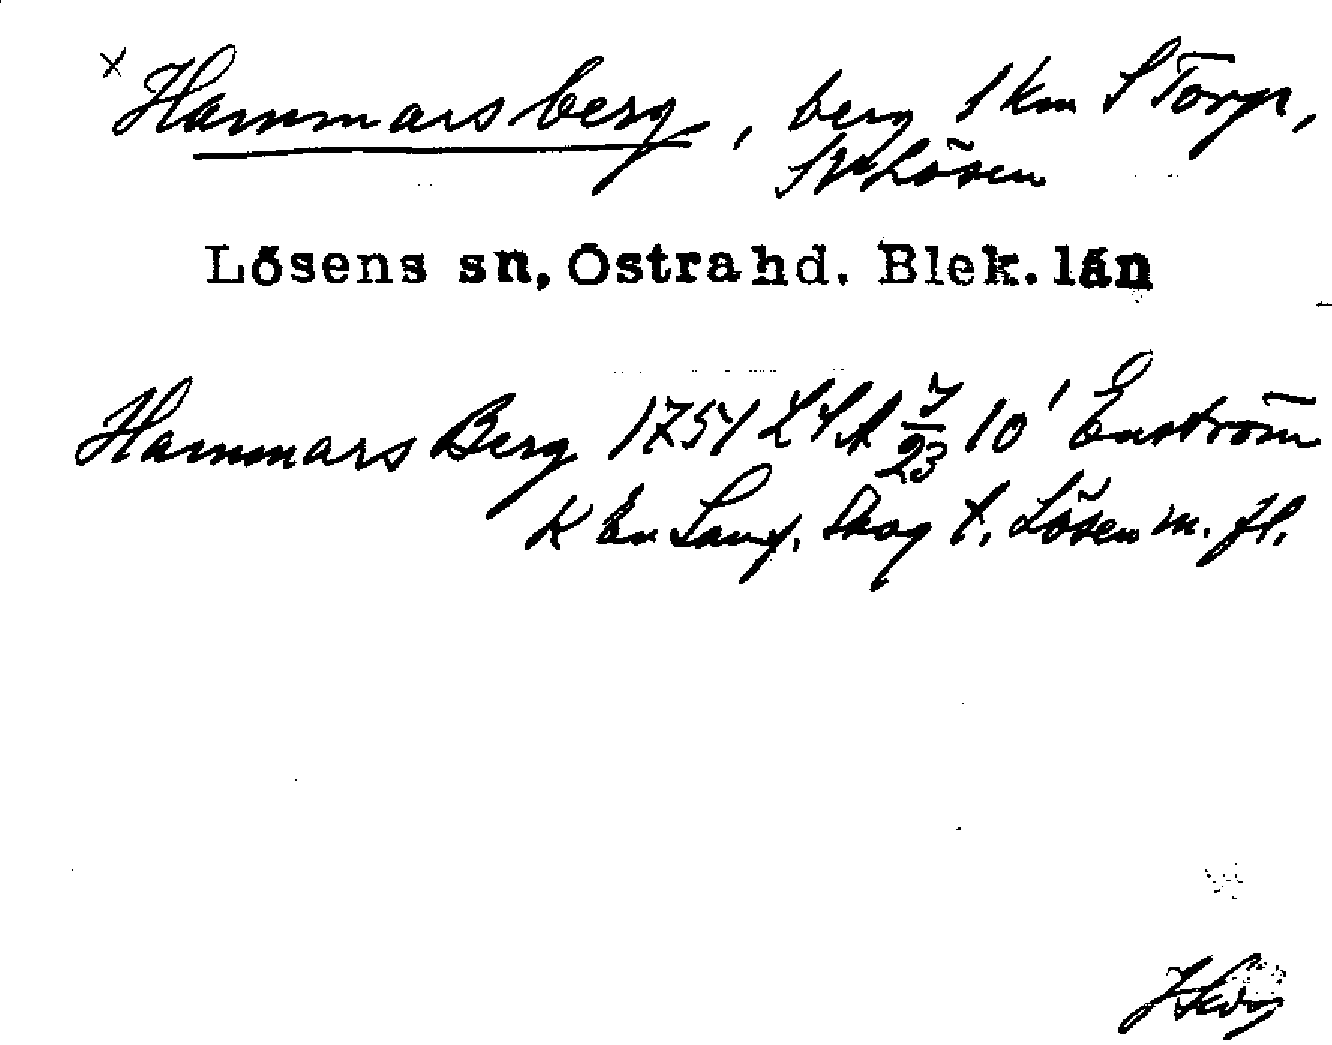 x Hammarsberg, berg 1 km S Torp,
SV Lösen
Lösens sn, Östra hd. Blek. län
Hammars Berg 1751 LSA 7/23 10' Enström
K En Skog t. Lösen m. fl.